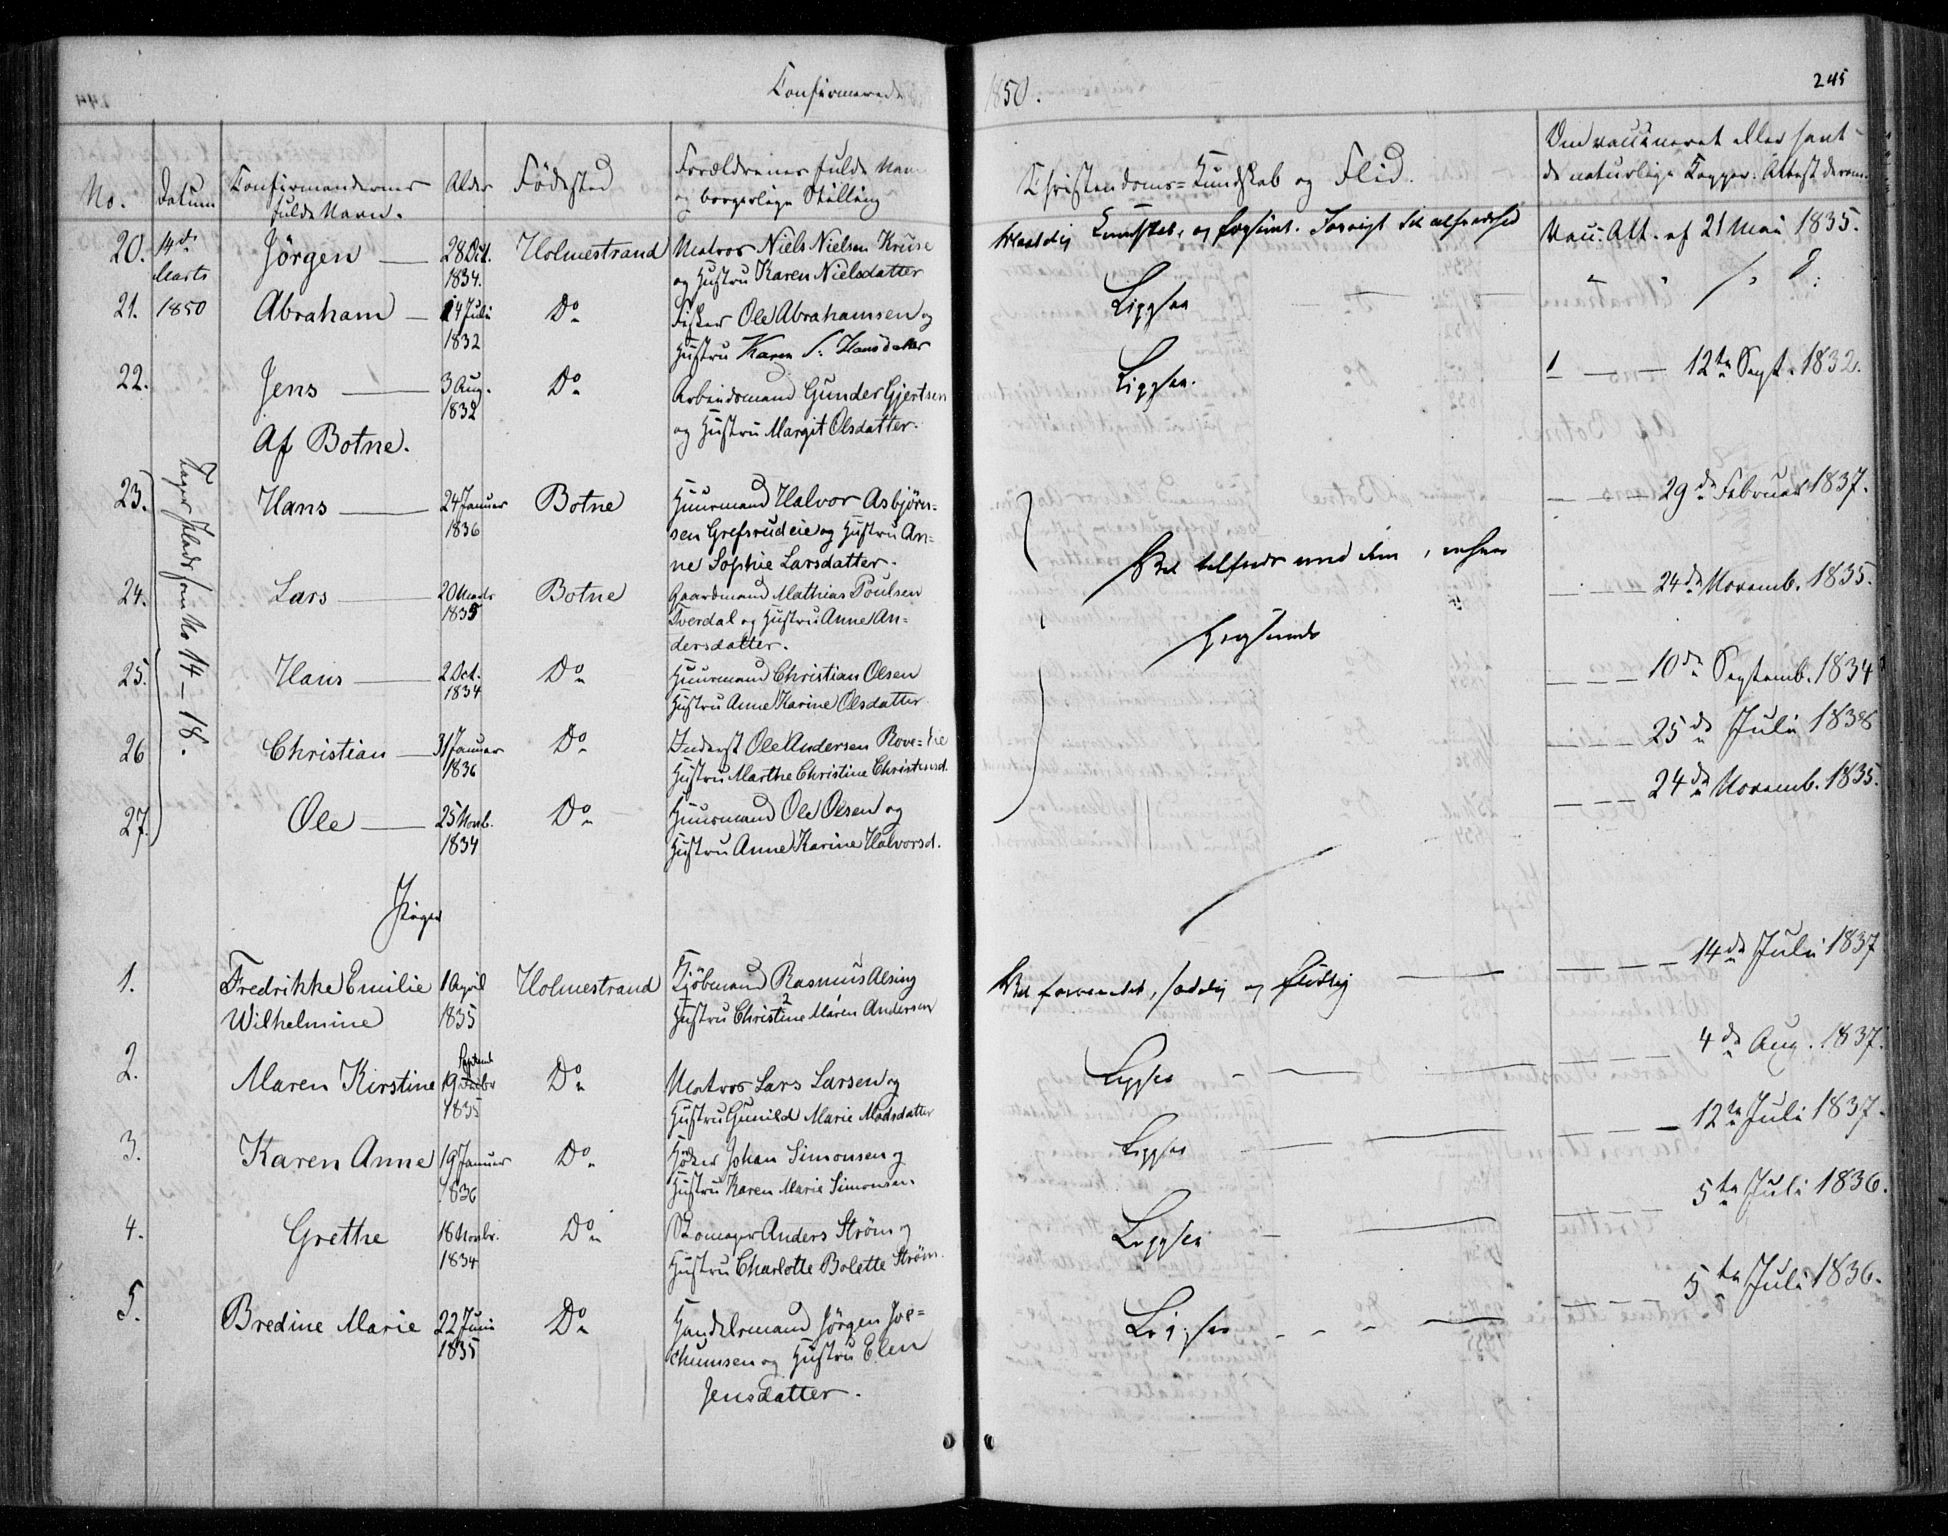 Confirmerede
1850.
245
No.
Datum
Confirmandernes
fulde Navn.
Alder
Födested
Forældrenes fulde Navn
og borgerlige Stilling
Christendoms-Kundskab og Flid.
Om vaccineret eller havt
de naturlige Kopper: Attest derom.
20. 14de Jörgen — 28 Oct. Holmestrand Matros Niels Nielsen Kruse
Marts 1834. og Hustru Karen Nielsdatter
Maadelig Kundskab, og
Vacc. Att. af 21 Mai 1835.
21. 1850 Abraham — 14 Juli Do Fisker Ole Abrahamsen og
1832 Hustru Karen S. Hansdatter
Ligesaa
22. Jens — 3 Aug. Do Arbeidsmand Gunder Gjertsen
1832 og Hustru Margit Olsdatter.
Ligesaa.
12te Sept. 1832.
Af Botne.
Tager Plads som No 14—18.
23. Hans — 24 Januar Botne Huusmand Halvor Asbjörn-
1836 sen Grefsrudeie og Hustru An-
ne Sophie Larsdatter.
29de Februar 1837.
24. Lars — 20 Marts Botne Gaardmand Mathias Poulsen
1835 Tverdal og Hustru Anne An-
dersdatter.
24de Novemb. 1835.
25. Hans — 2 Oct. Do Huusmand Christian Olsen
1834 Hustru Anne Karine Olsdatter
10de Septemb. 1834
26 Christian — 31 Januar Do Inderst Ole Andersen Rove-eie
1836 Hustru Marthe Christine Christensd.
25de Juli 1838
27. Ole — 25 Novb. Do Huusmand Ole Olsen og
1834 Hustru Anne Karine Halvorsd.
24de Novemb. 1835.
Piger
1. Fredrikke Emilie 1 April Holmestrand Kjöbmand Rasmus Alsing
Wilhelmine 1835 Hustru Christine Maren Andersen
Vel forberedet, sædelig og flittig
14de Juli 1837
2. Maren Kirstine 19 Septemb Do Matros Lars Larsen og
1835 Hustru Gunild Marie Madsdatter
Ligesaa
4de Aug. 1837.
3. Karen Anne 19 Januar Do Höker Johan Simonsen og
1836 Hustru Karen Marie Simonsen.
Ligesaa
12te Juli 1837.
4. Grethe 18 Novbr. Do Skomager Anders Ström og
1834 Hustru Charlotte Bolette Ström.
Ligesaa
5te Juli 1836.
5. Bredine Marie 22 Juni Do Handelsmand Jörgen Joc-
1835 chumsen og Hustru Elen
Jensdatter.
Ligesaa
5te Juli 1836.